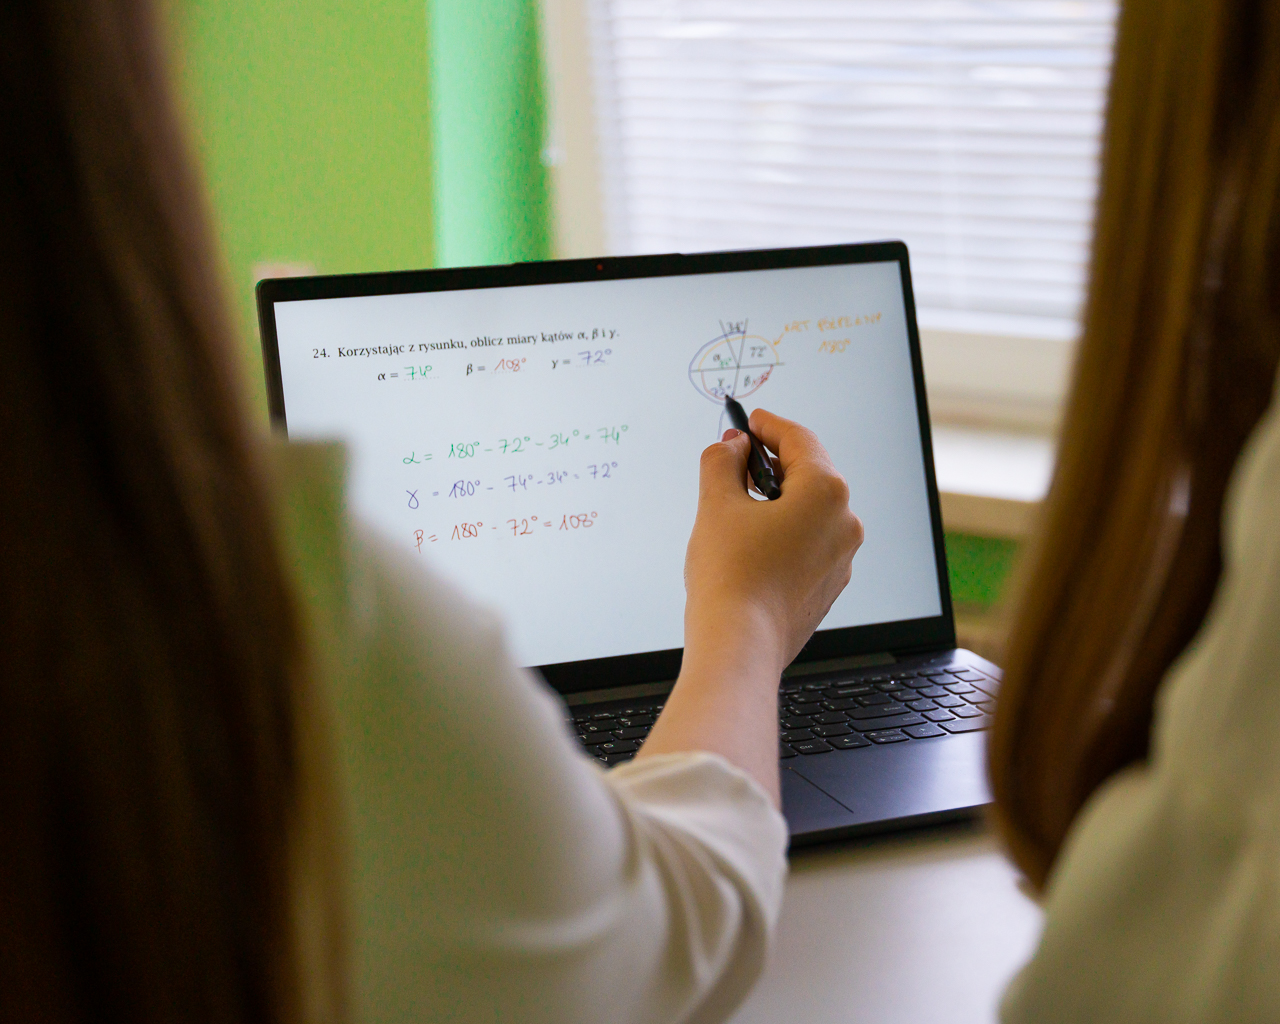 24. Korzystając z rysunku, oblicz miary kątów α, β i γ.
α = 74° β = 108° γ = 72°
34°
α 72°
γ β
72°
180°
α = 180° - 72° - 34° = 74°
γ = 180° - 74° - 34° = 72°
β = 180° - 72° = 108°